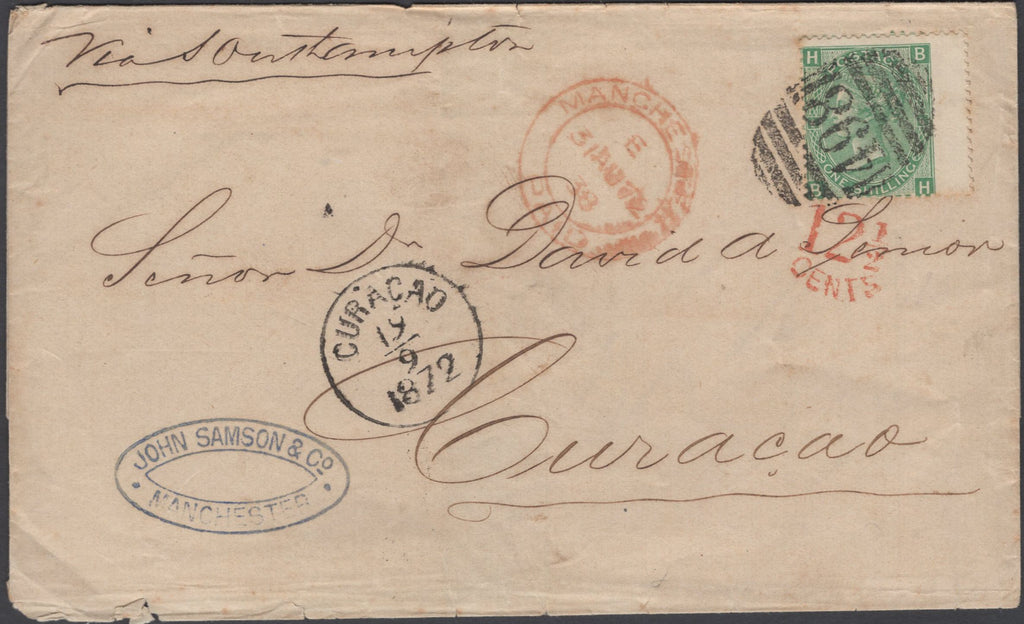 Via Southampton
H B
ONE SHILLING
B H
498
MANCHES
E
31 AU 72
38
PAID
12½
CENTS
Señor Dn David A Senior
CURAÇAO
19/9
1872
Curaçao
JOHN SAMSON & Co
MANCHESTER